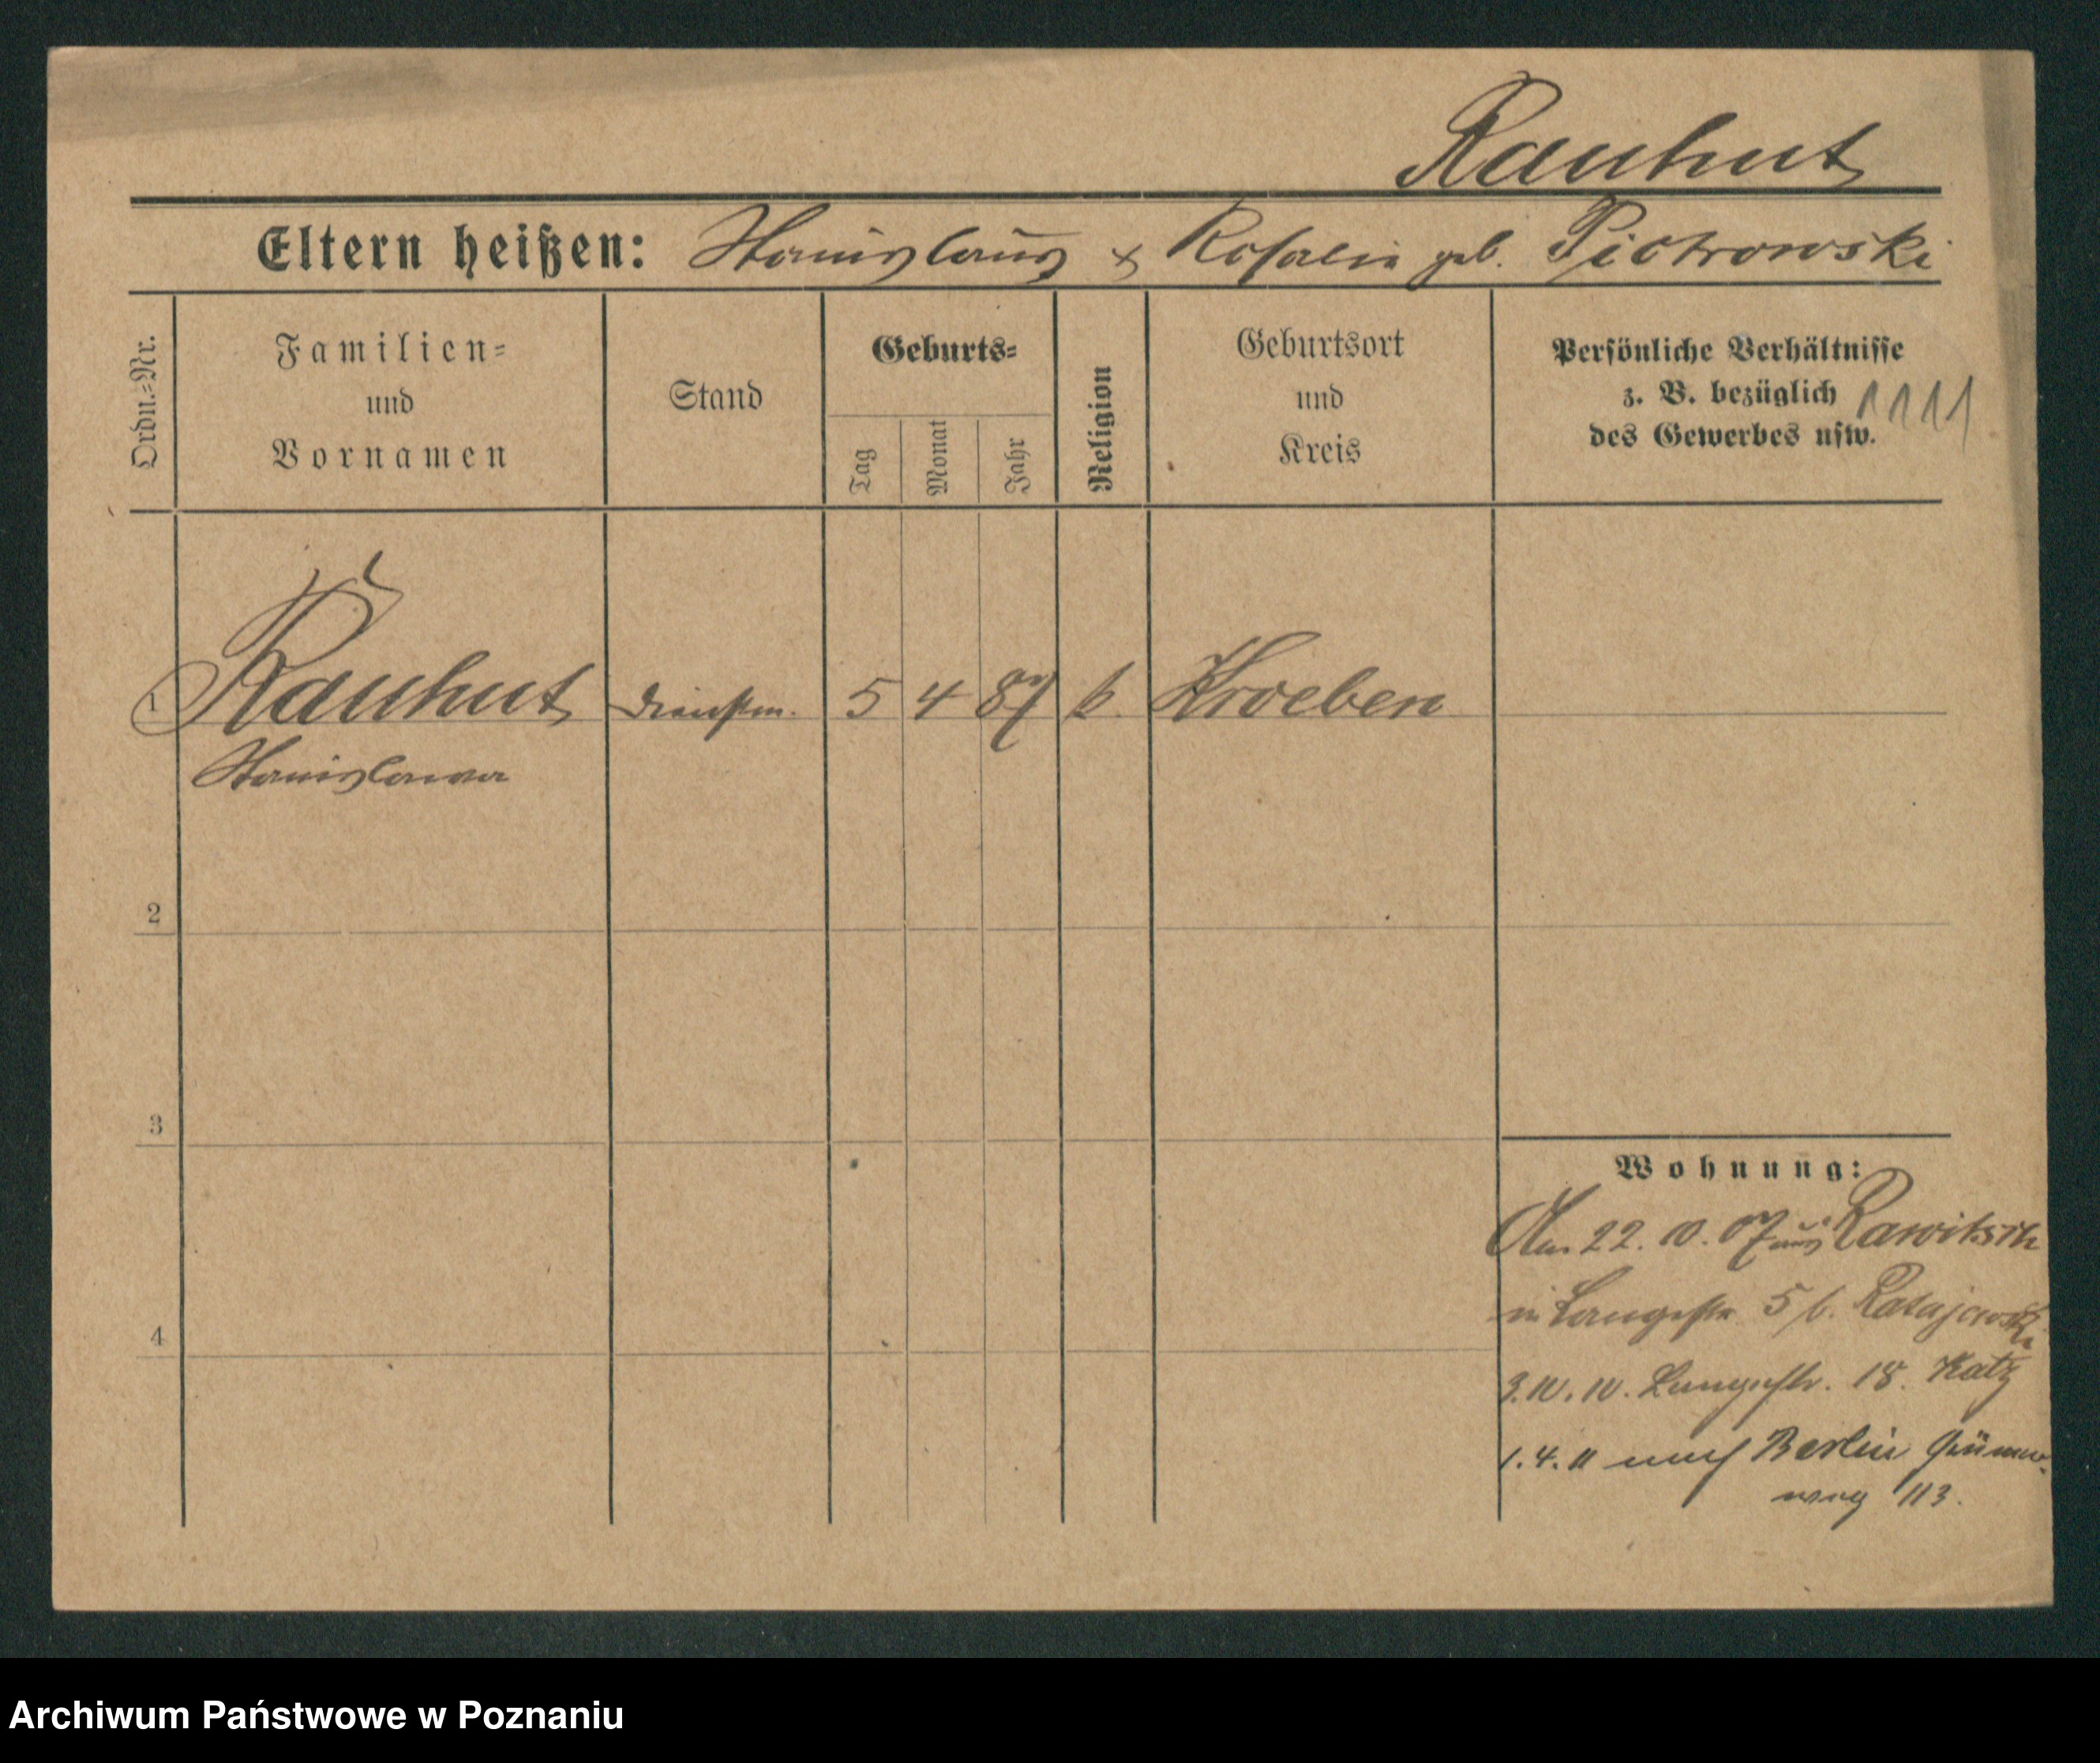 Rauhut
Eltern heißen: Stanislaus & Rosalie geb. Piotrowski
Ordn.=Nr.
Familien=
und
Vornamen
Stand
Geburts=
Tag
Monat
Jahr
Religion
Geburtsort
und
Kreis
Persönliche Verhältnisse
z. B. bezüglich
des Gewerbes usw.
1111
1 Rauhut Dienstm. 5 4 87 k. Kroeben
Stanislawa
2
3
4
Wohnung:
Am 22. 10. 07 aus Rawitsch
in Langestr. 5 b. Ratajczak
3.10.10. Langestr. 18. Katz
1.4.11 nach Berlin Grüner
weg 113.
Archiwum Państwowe w Poznaniu